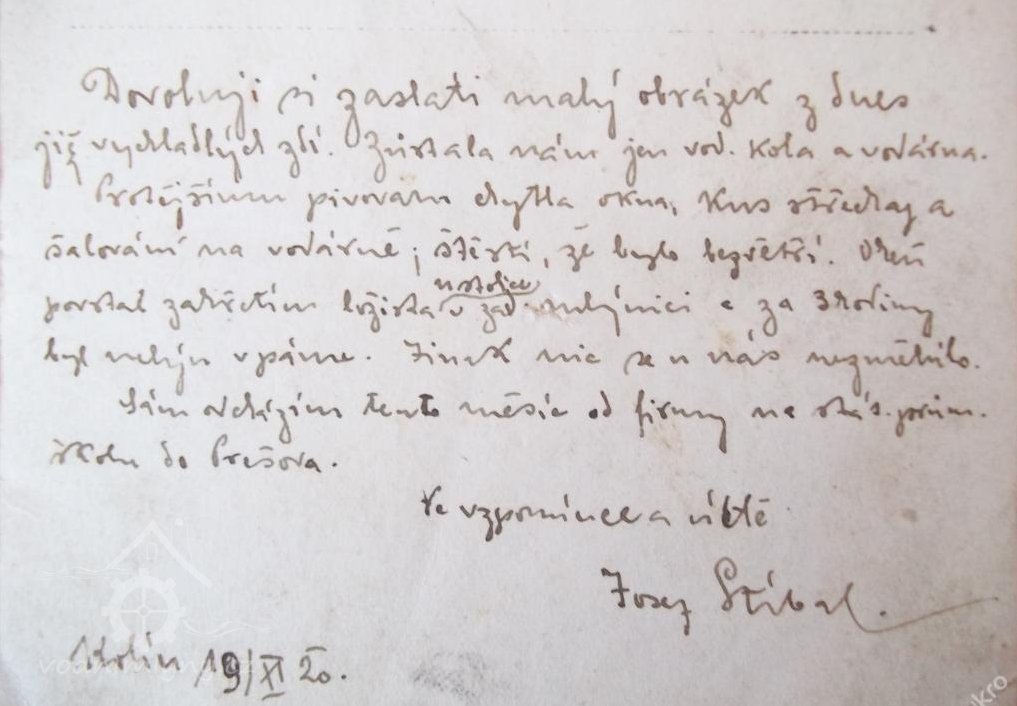 Dovoluji si zaslati malý obrázek z dnes
již vychladlých zdí. Zůstala nám jen vod. kola a vodárna.
Protějšímu pivovaru chytla okna, kus střechy a
šalování na vodárně; štěstí, že bylo bezvětří. Oheň
povstal zadřetím ložiska u stolice v mlýnici a za 3 hodiny
byl mlýn v páme. Jinak nic se u nás nezměnilo.
Sám odcházím tento měsíc od firmy na stát. prům.
školu do Prešova.
Ve vzpomínce a úctě
Josef Stíbal.
Kolín 19/XI 20.